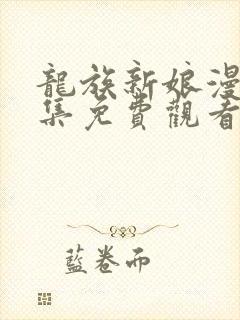 龍族新娘漫
集免費觀看
藍卷而